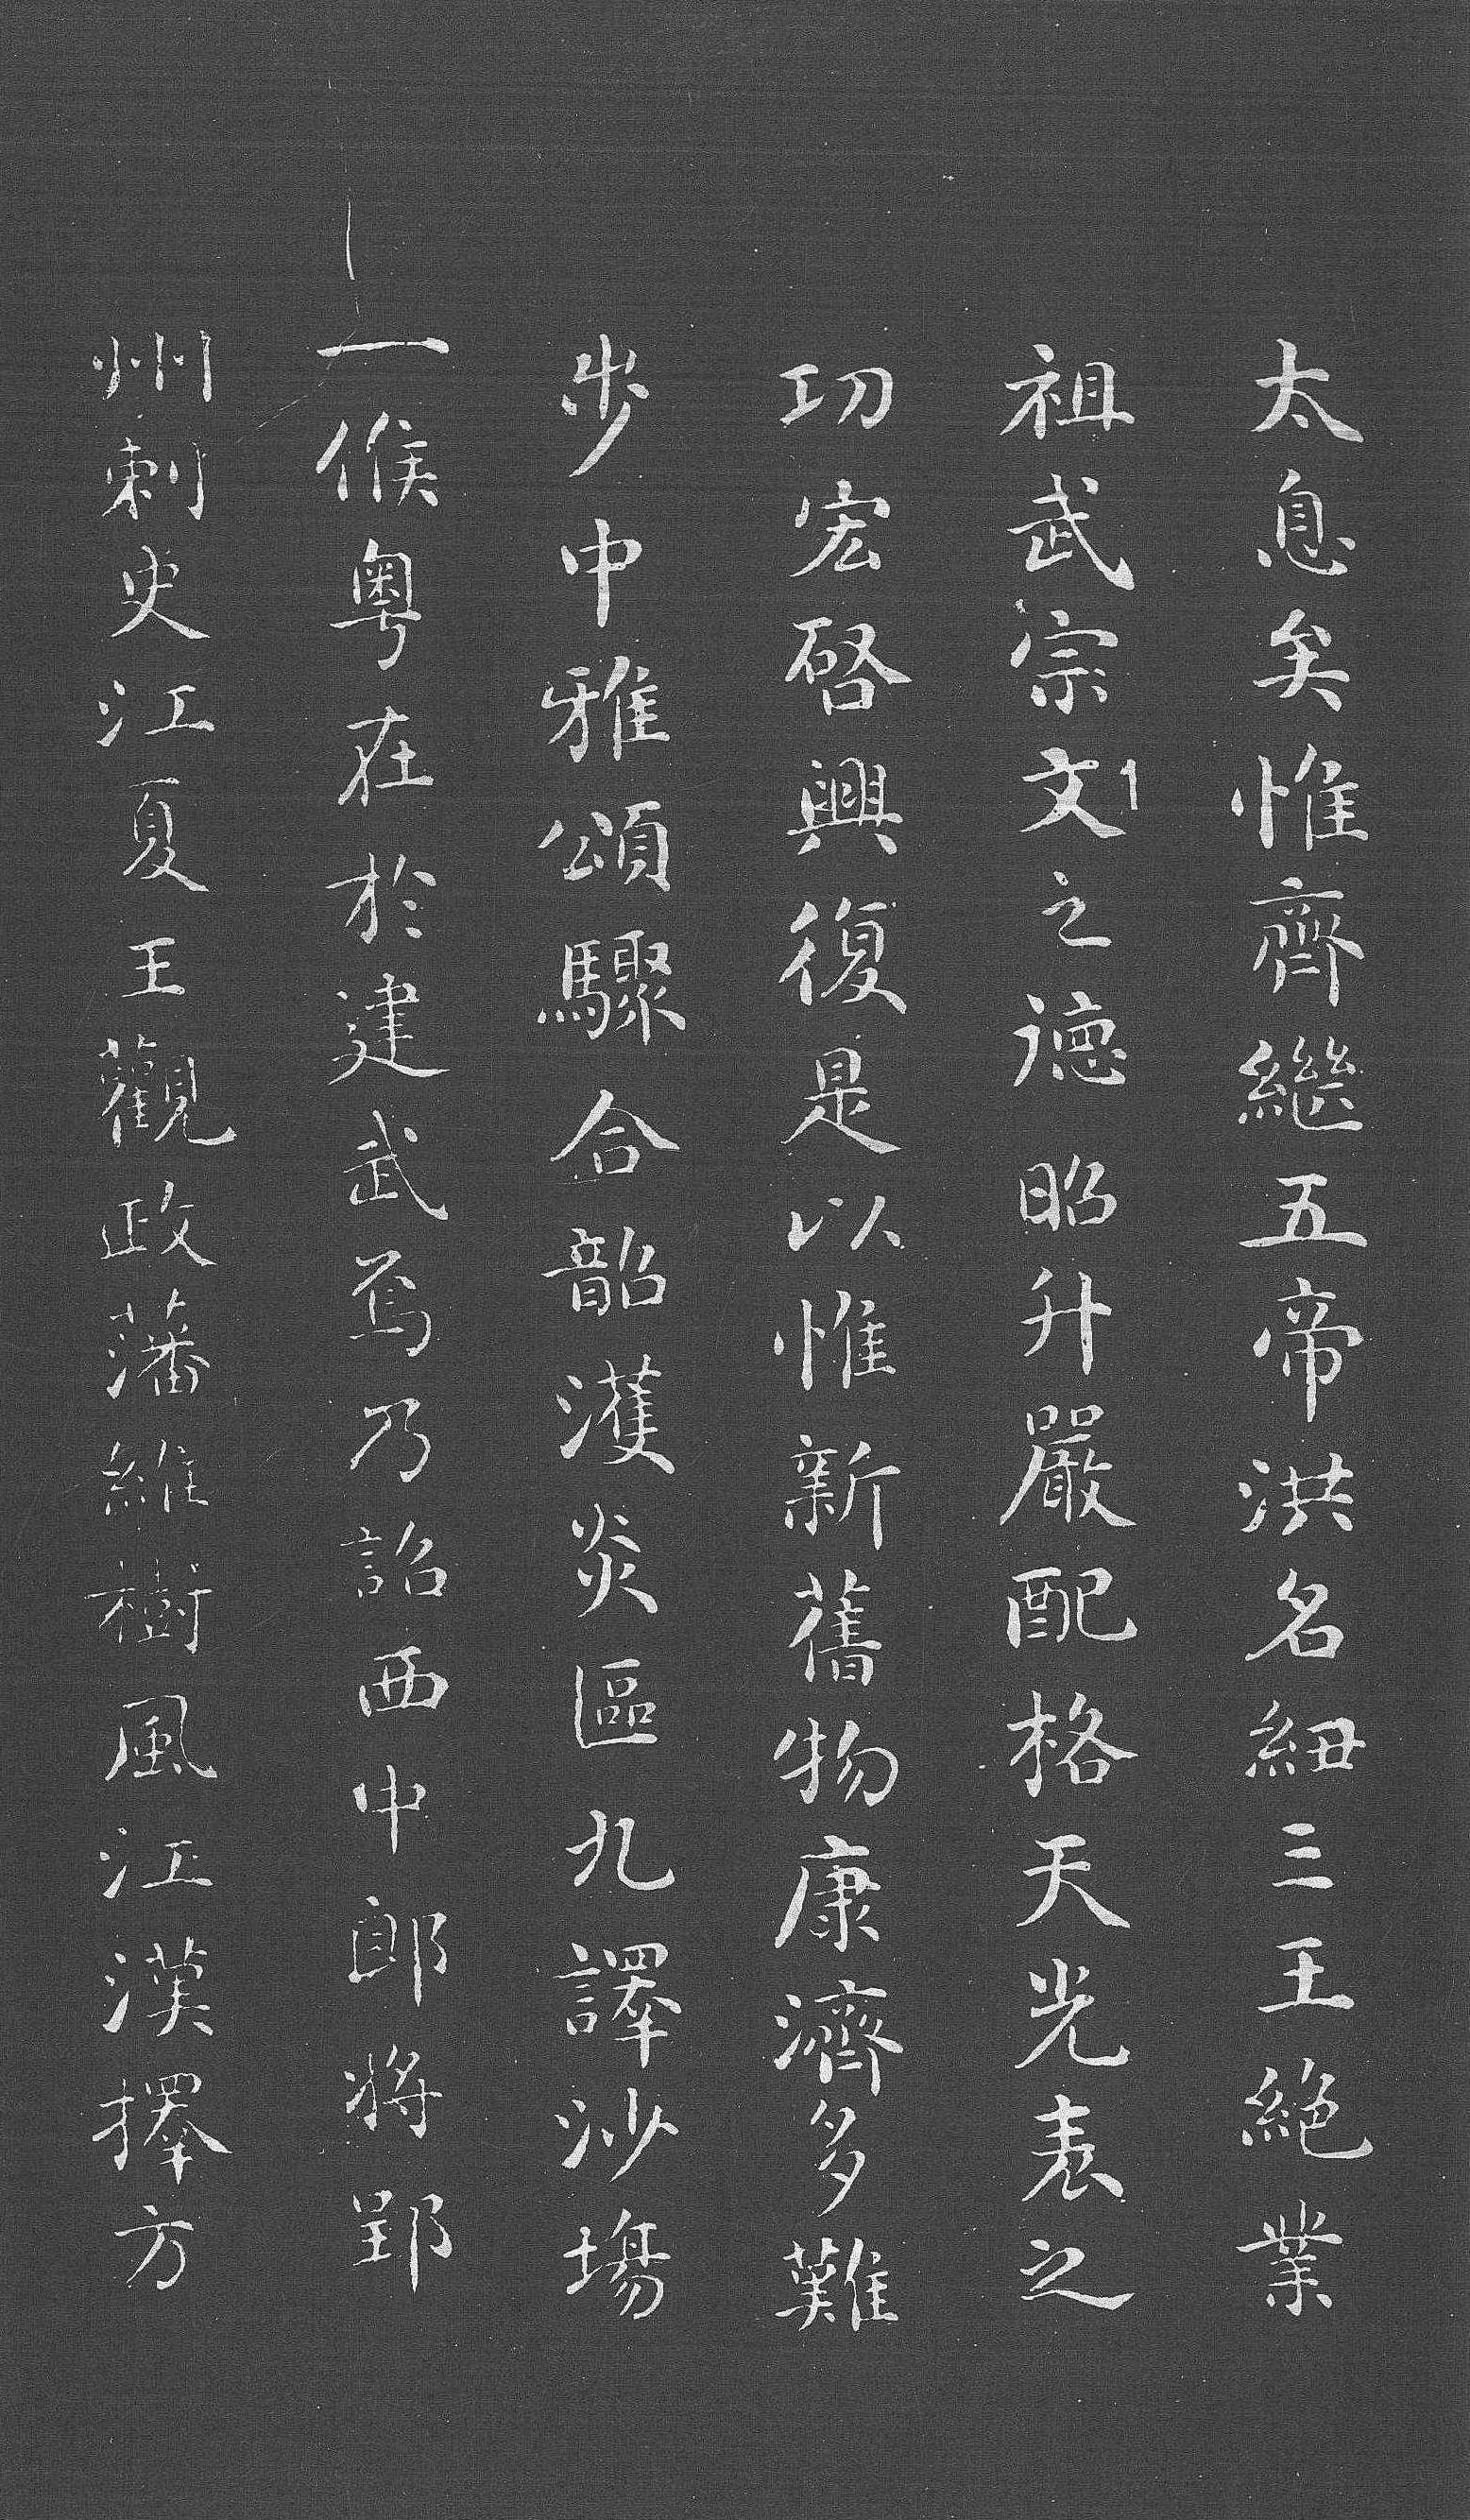 太息矣惟齊繼五帝洪名紐三王絕業
祖武宗文之德昭升嚴配格天光表之
功宏啓興復是以惟新舊物康濟多難
步中雅頌驟合韶濩炎區九譯沙場
一候粤在於建武焉乃詔西中郎將郢
州刺史江夏王觀政藩維樹風江漢擇方